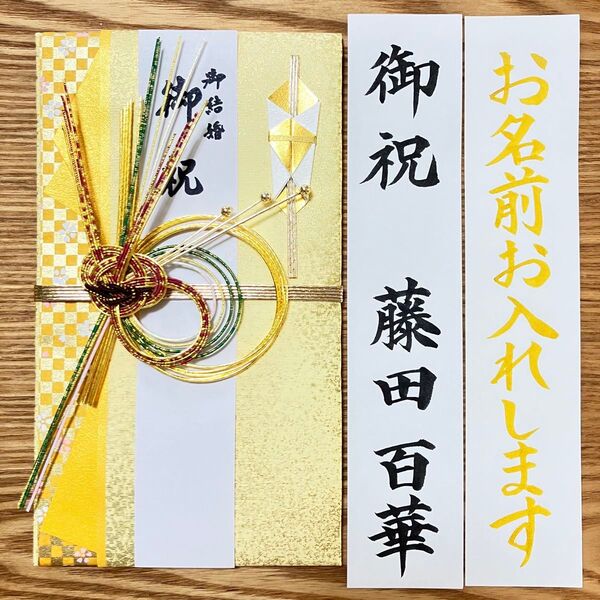 御結婚
御祝
御祝 藤田百華
お名前お入れします